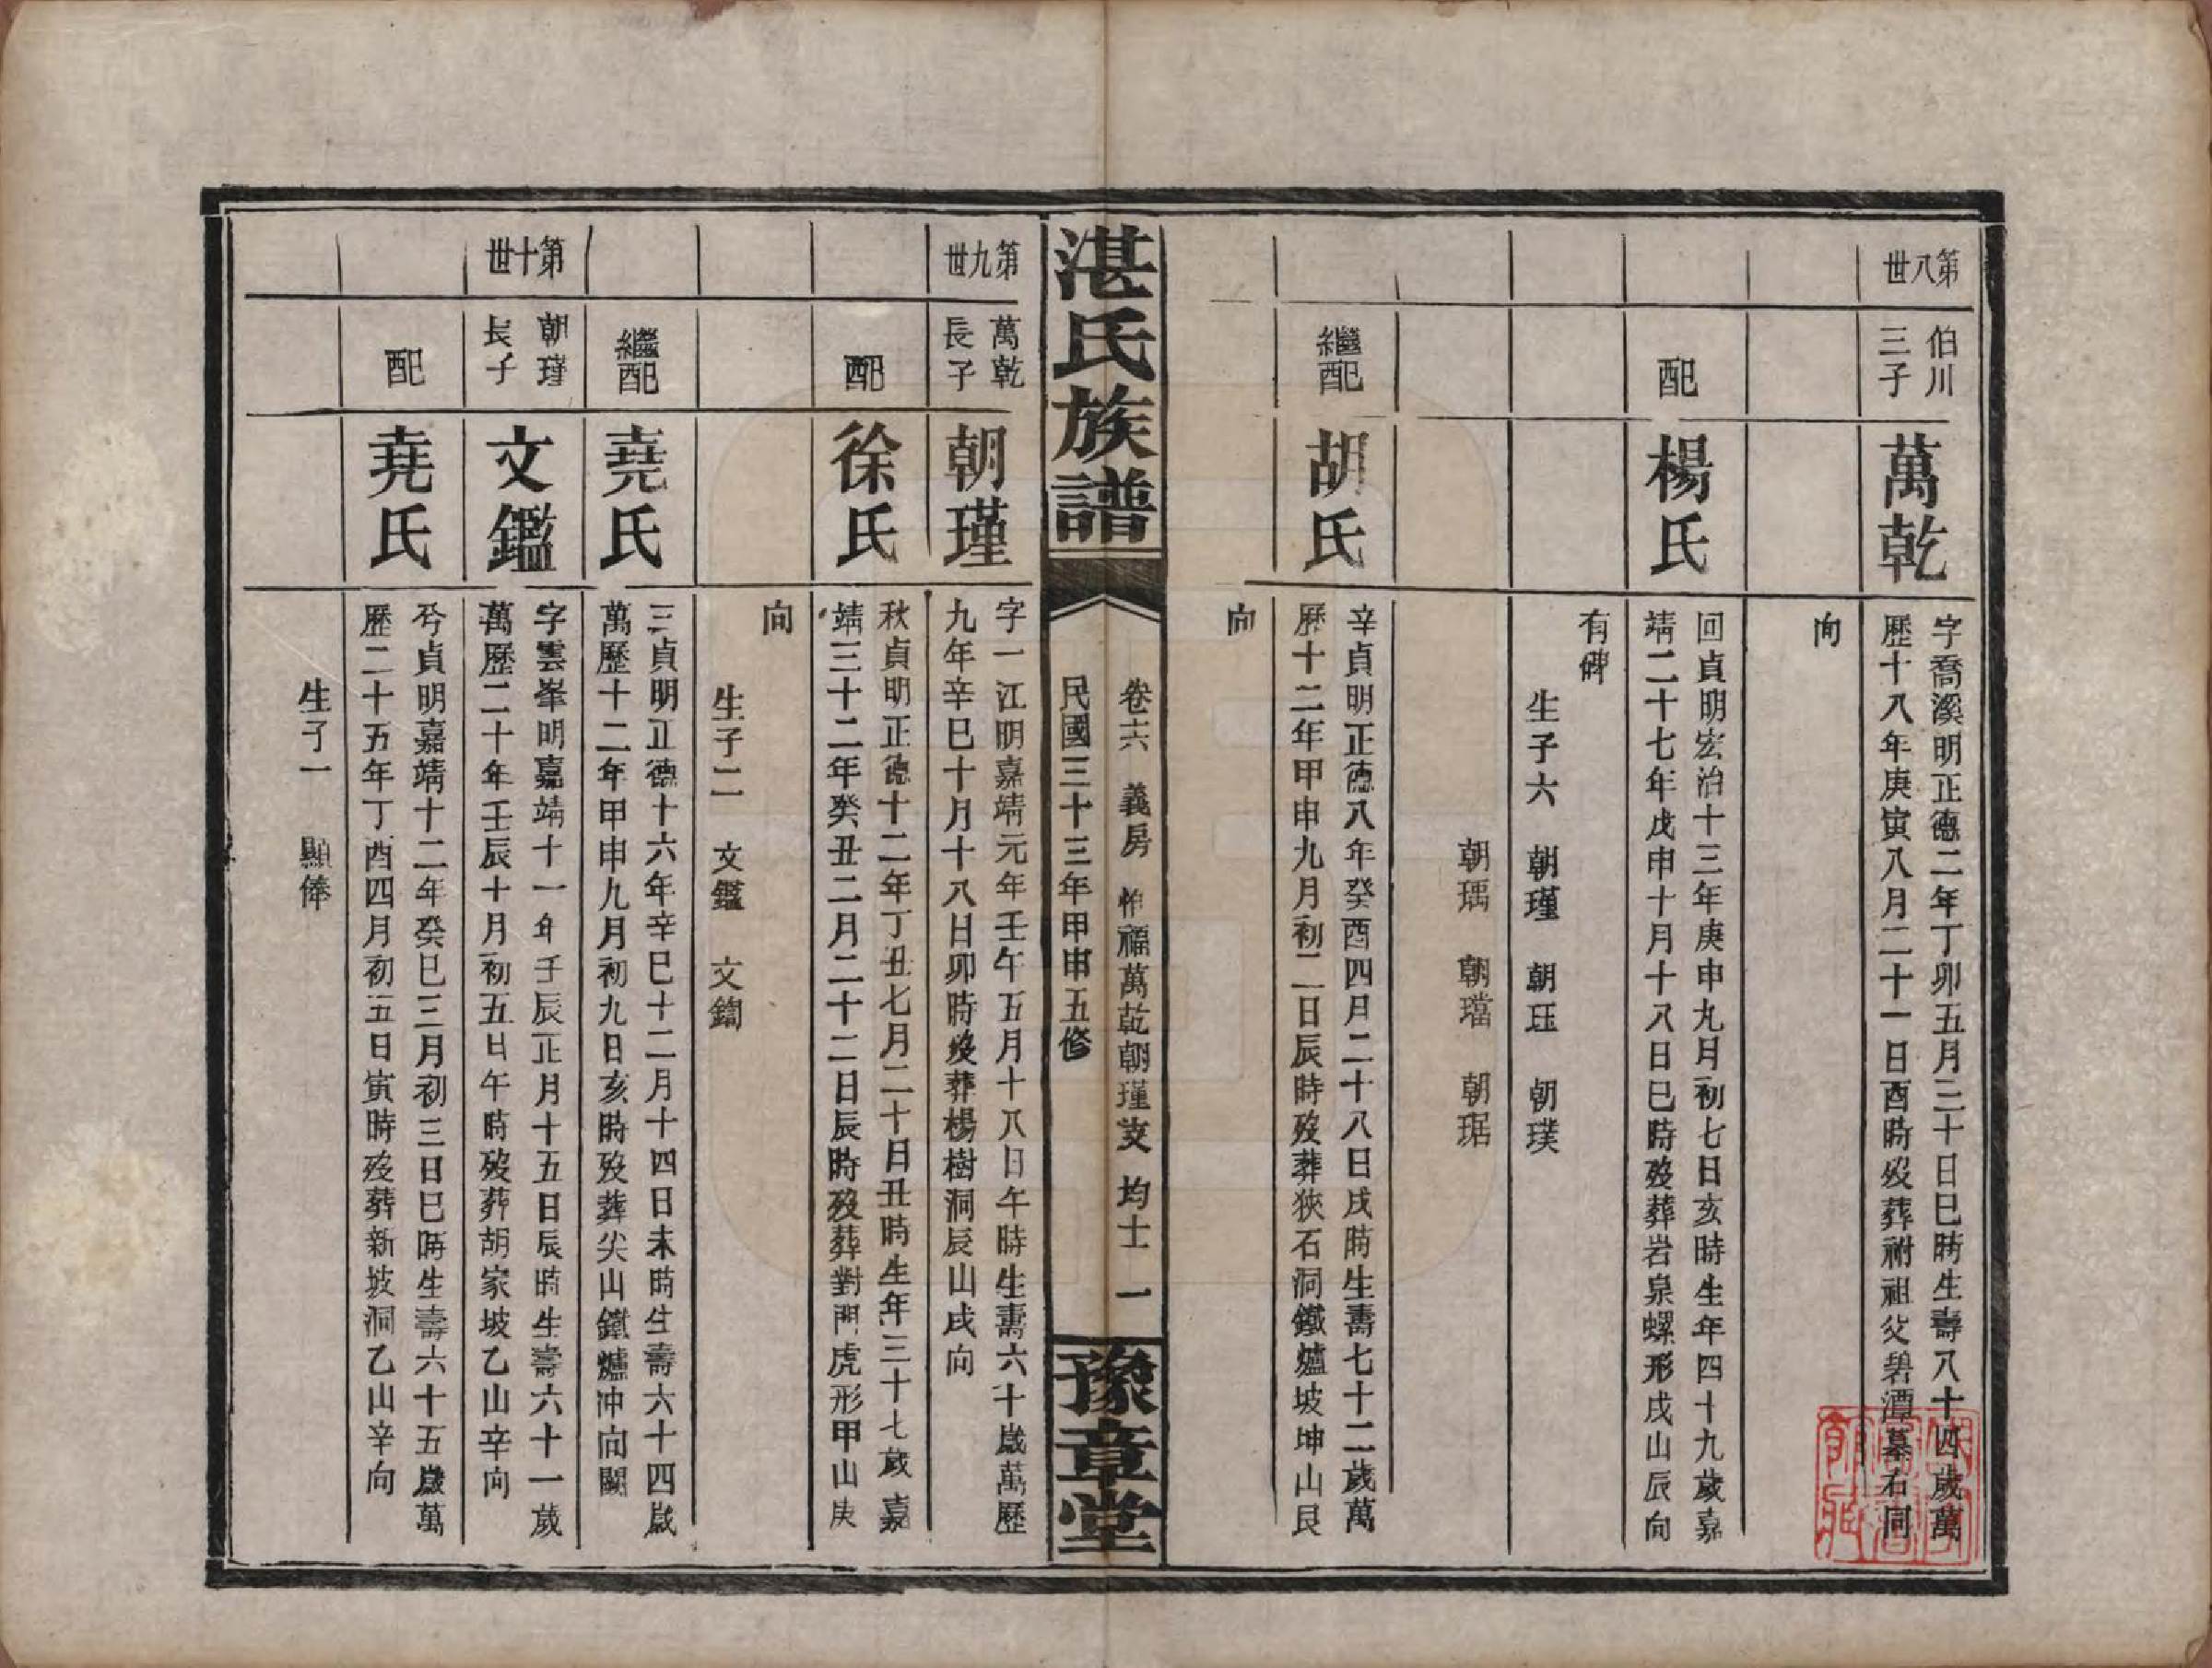 第八世
伯川
三子
萬乾
字喬溪明正德二年丁卯五月三十日巳時生壽八十四歲萬
歷十八年庚寅八月二十一日酉時歿葬祔祖父碧潭墓右同
向
配
楊氏
回貞明宏治十三年庚申九月初七日亥時生年四十九歲嘉
靖二十七年戊申十月十八日巳時歿葬岩泉螺形戌山辰向
有碑
生子六 朝瑾 朝珏 朝璞
朝瑀 朝璫 朝琚
繼配
胡氏
辛貞明正德八年癸酉四月二十八日戌時生壽七十二歲萬
歷十二年甲申九月初二日辰時歿葬狹石洞鐵爐坡坤山艮
向
湛氏族譜
卷六 義房 福萬乾朝瑾支 均士 一
民國三十三年甲申五修
豫章堂
第九世
萬乾
長子
朝瑾
字一江明嘉靖元年壬午五月十八日午時生壽六十歲萬歷
九年辛巳十月十八日卯時歿葬楊樹洞辰山戌向
配
徐氏
秋貞明正德十二年丁丑七月二十日丑時生年三十七歲嘉
靖三十二年癸丑二月二十二日辰時歿葬對門虎形甲山庚
向
生子二 文鑑 文鑰
繼配
堯氏
三貞明正德十六年辛巳十二月十四日未時生壽六十四歲
萬歷十二年甲申九月初九日亥時歿葬尖山鐵爐冲向闕
第十世
朝瑾
長子
文鑑
字雲峯明嘉靖十一年壬辰正月十五日辰時生壽六十一歲
萬歷二十年壬辰十月初五日午時歿葬胡家坡乙山辛向
配
堯氏
兮貞明嘉靖十二年癸巳三月初三日巳時生壽六十五歲萬
歷二十五年丁酉四月初五日寅時歿葬新坡洞乙山辛向
生子一 顯俸